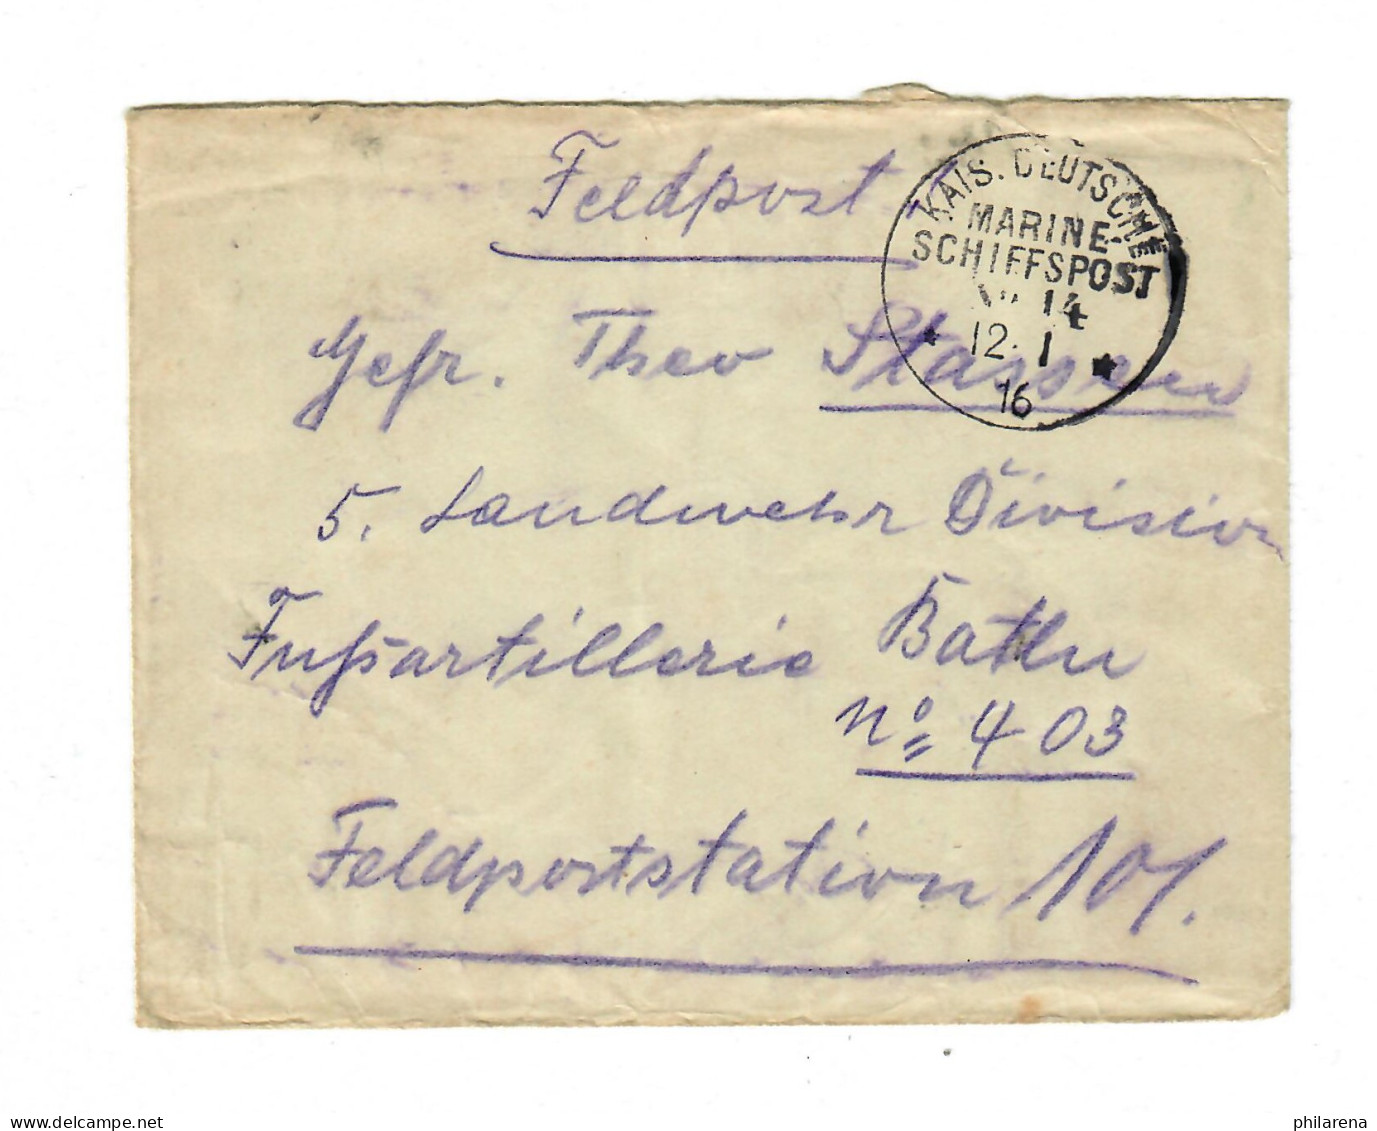 Feldpost
KAIS. DEUTSCHE
MARINE-
SCHIFFSPOST
No 14
* 12. 1 *
16
Gefr. Theo Stassen
5. Landwehr Division
Fußartillerie Battr
No 403
Feldpoststation 101.
www.delcampe.net
philarena